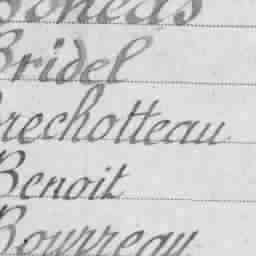 Bridel
Brechotteau
Benoit
Bourreau